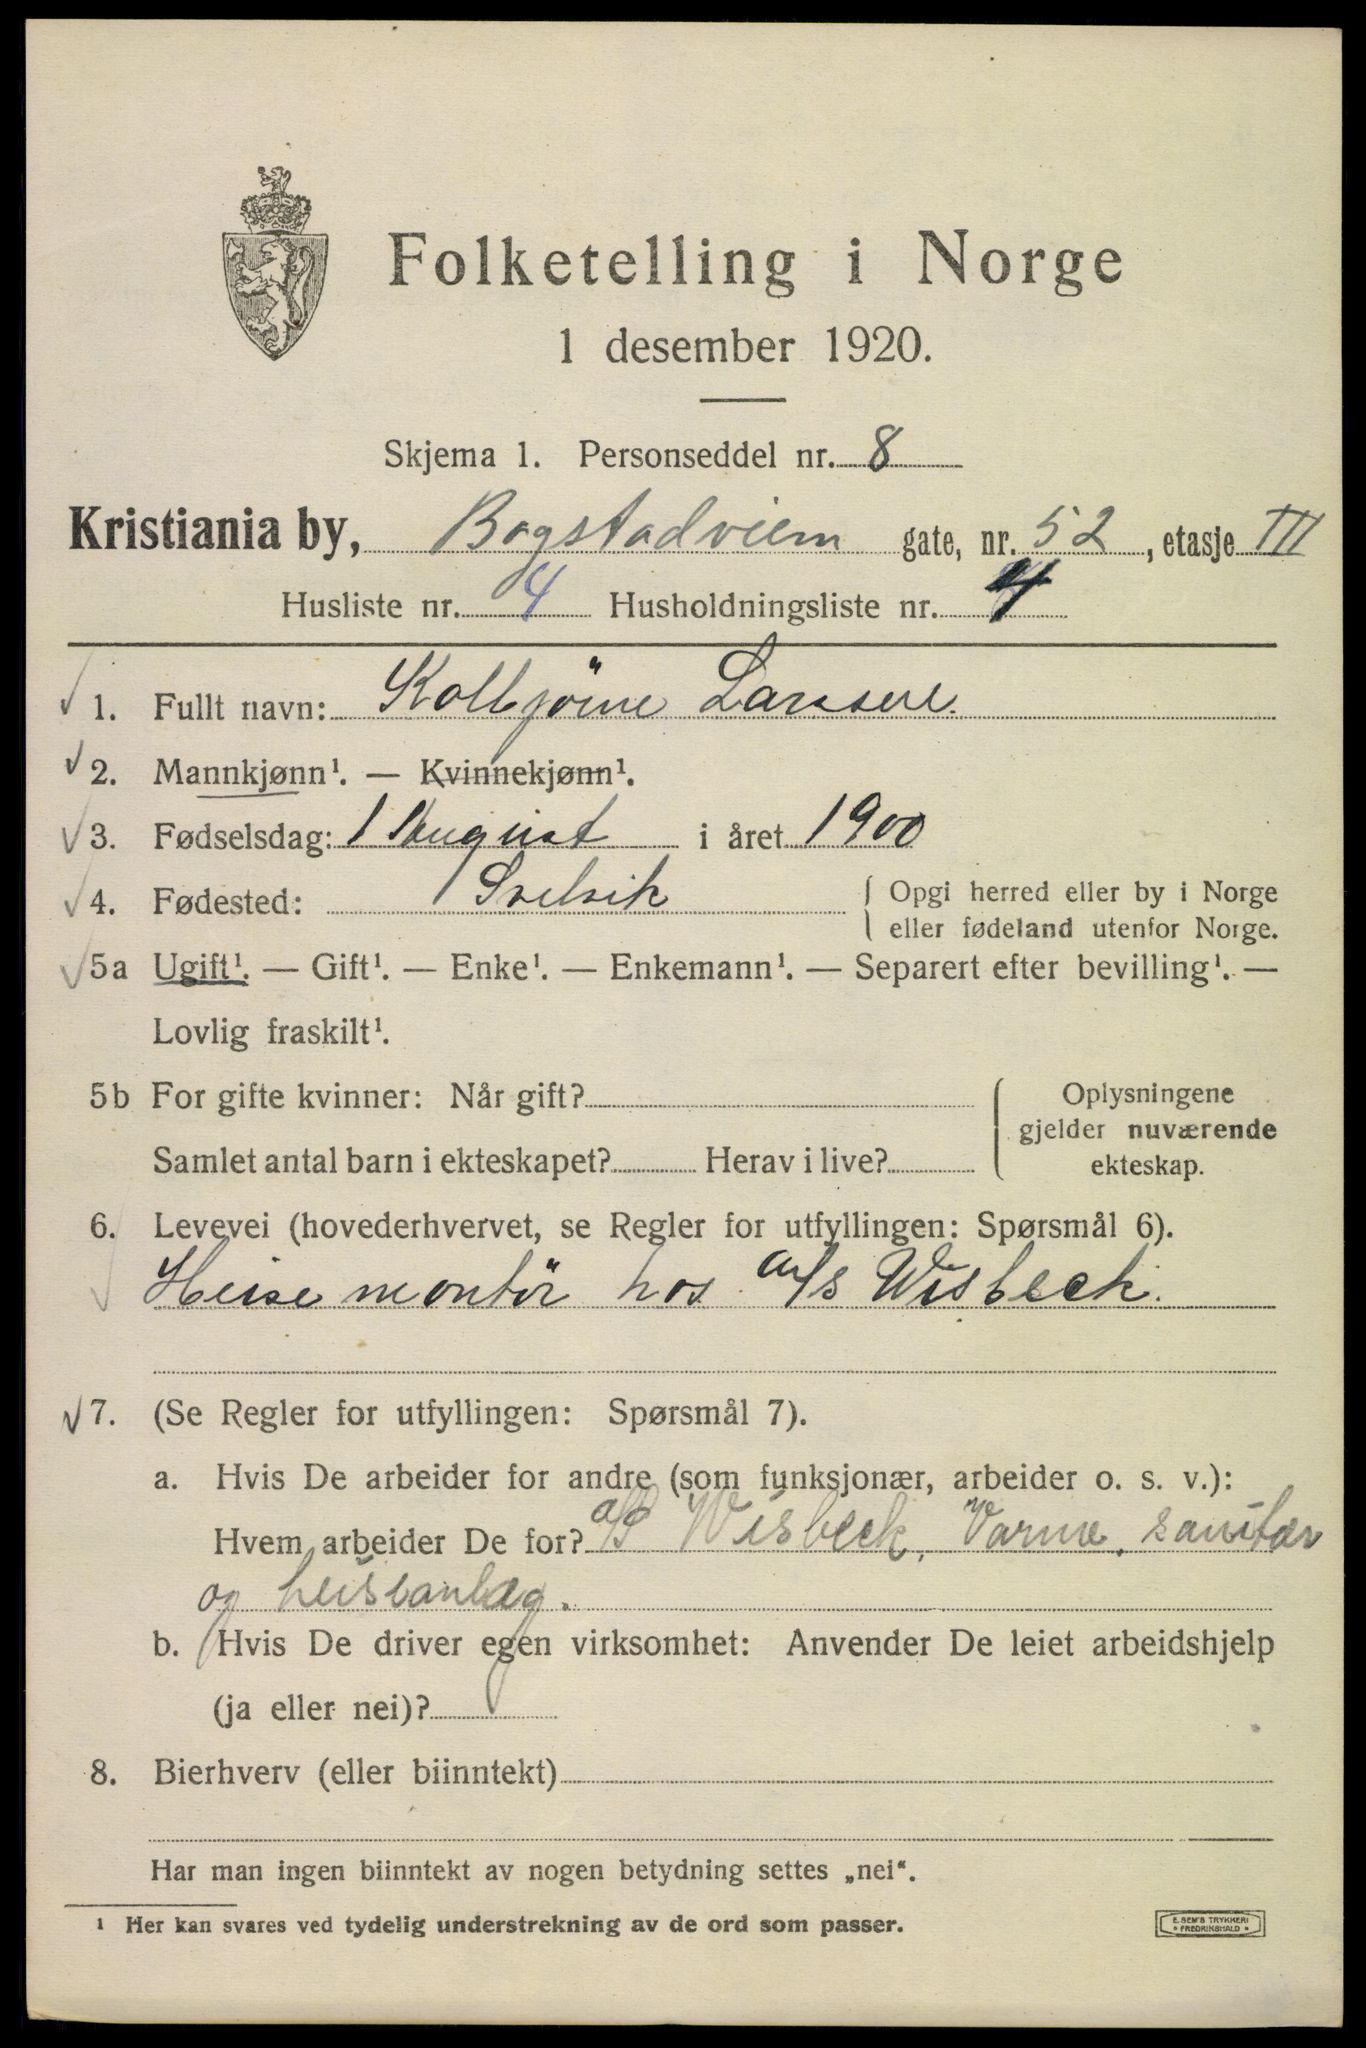 Folketelling i Norge
1 desember 1920.
Skjema 1. Personseddel nr. 8
Kristiania by, Bogstadveien gate, nr. 52, etasje III
Husliste nr. 4 Husholdningsliste nr. 4
1. Fullt navn: Kolbjörn Larsen.
2. Mannkjønn¹. — Kvinnekjønn¹.
3. Fødselsdag: 1 August i året 1900
4. Fødested: Svelvik { Opgi herred eller by i Norge
eller fødeland utenfor Norge.
5a Ugift¹. — Gift¹. — Enke¹. — Enkemann¹. — Separert efter bevilling¹. —
Lovlig fraskilt¹.
5b For gifte kvinner: Når gift?
Samlet antal barn i ekteskapet? Herav i live?
{ Oplysningene
gjelder nuværende
ekteskap.
6. Levevei (hovederhvervet, se Regler for utfyllingen: Spørsmål 6).
Heise montör hos a/s Wisbeck.
7. (Se Regler for utfyllingen: Spørsmål 7).
a. Hvis De arbeider for andre (som funksjonær, arbeider o. s. v.):
Hvem arbeider De for? a/s Wisbeck, Varme, sanitær
og heiseanlæg.
b. Hvis De driver egen virksomhet: Anvender De leiet arbeidshjelp
(ja eller nei)?
8. Bierhverv (eller biinntekt)
Har man ingen biinntekt av nogen betydning settes „nei“.
¹ Her kan svares ved tydelig understrekning av de ord som passer.
E. SEM'S TRYKKERI
* FREDRIKSHALD *